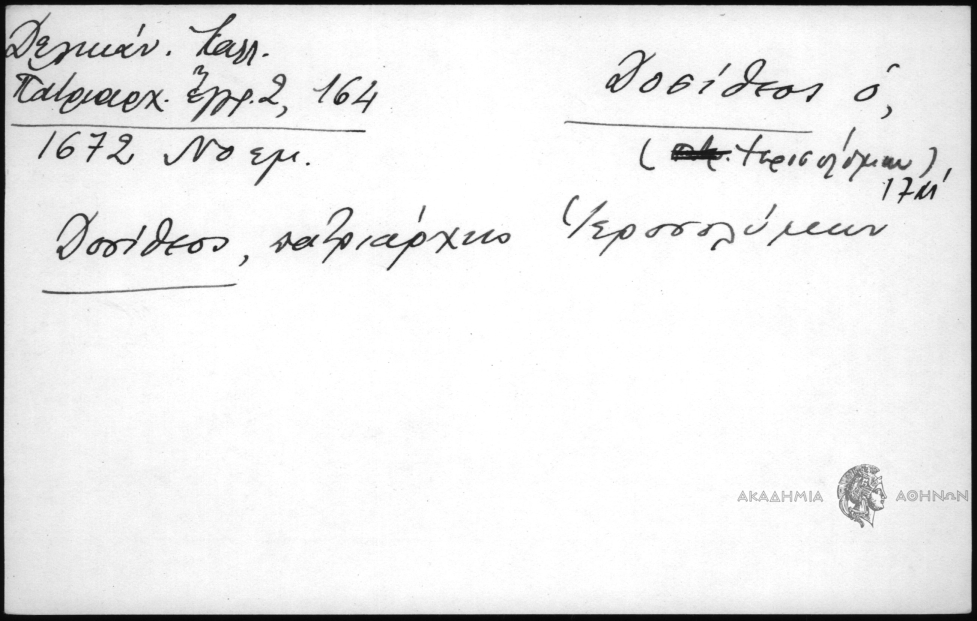 Δελικάν. Καλλ.
Πατριαρχ. Ἔγγρ. 2, 164
1672 Νοεμ.
Δοσίθεος ὁ,
(Ἱεροσολύμων)
17
Δοσίθεος, πατριάρχης Ἱεροσολύμων
ΑΚΑΔΗΜΙΑ ΑΘΗΝΩΝ